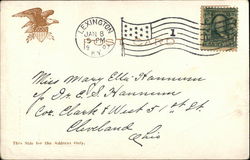 LEXINGTON
JAN 8
KY.
1
Miss Mary Etta Hannum
c/o Dr. C. S. Hannum
Cor. Clark & West 51st St.
Cleveland
Ohio
This Side for the Address Only.